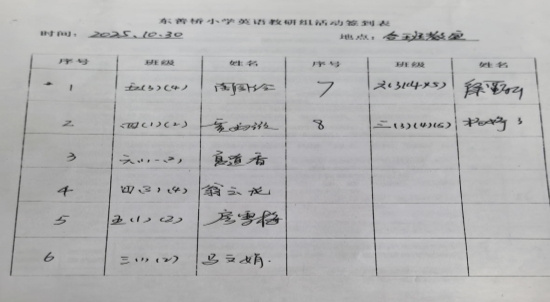 东善桥小学英语教研组活动签到表
时间：2025.10.30 地点：各班教室
序号 班级 姓名 序号 班级 姓名
1 五(3)(4) 7 六(3)(4)(5)
2 四(1)(2) 8 三(3)(4)(5)
3 六(1)(2) 高道香
4 四(3)(4) 翁云龙
5 五(1)(2) 廖雪梅
6 三(1)(2) 吕文娟